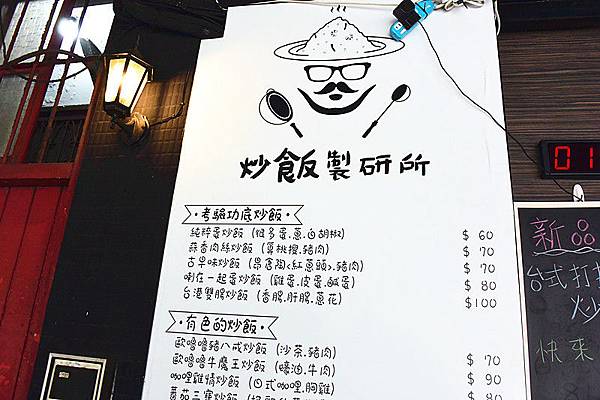 炒飯製研所
考驗功底炒飯
純粹蛋炒飯 (很多蛋.蔥.白胡椒) $ 60
蒜香肉絲炒飯 (真桃擾.豬肉) $ 70
古早味炒飯 (昂舊陶<紅蔥頭>.豬肉) $ 70
咧在一起蛋炒飯 (雞蛋.皮蛋.鹹蛋) $ 80
台港雙腸炒飯 (香腸.肝腸.蔥花) $100
有色的炒飯
歐嚕嚕豬八戒炒飯 (沙茶.豬肉) $ 70
歐嚕嚕牛魔王炒飯 (蠔油.牛肉) $ 90
咖哩雞情炒飯 (日式咖哩.胸雞) $ 80
蕃茄三寶炒飯
01
新品
台式打拋
炒
快來